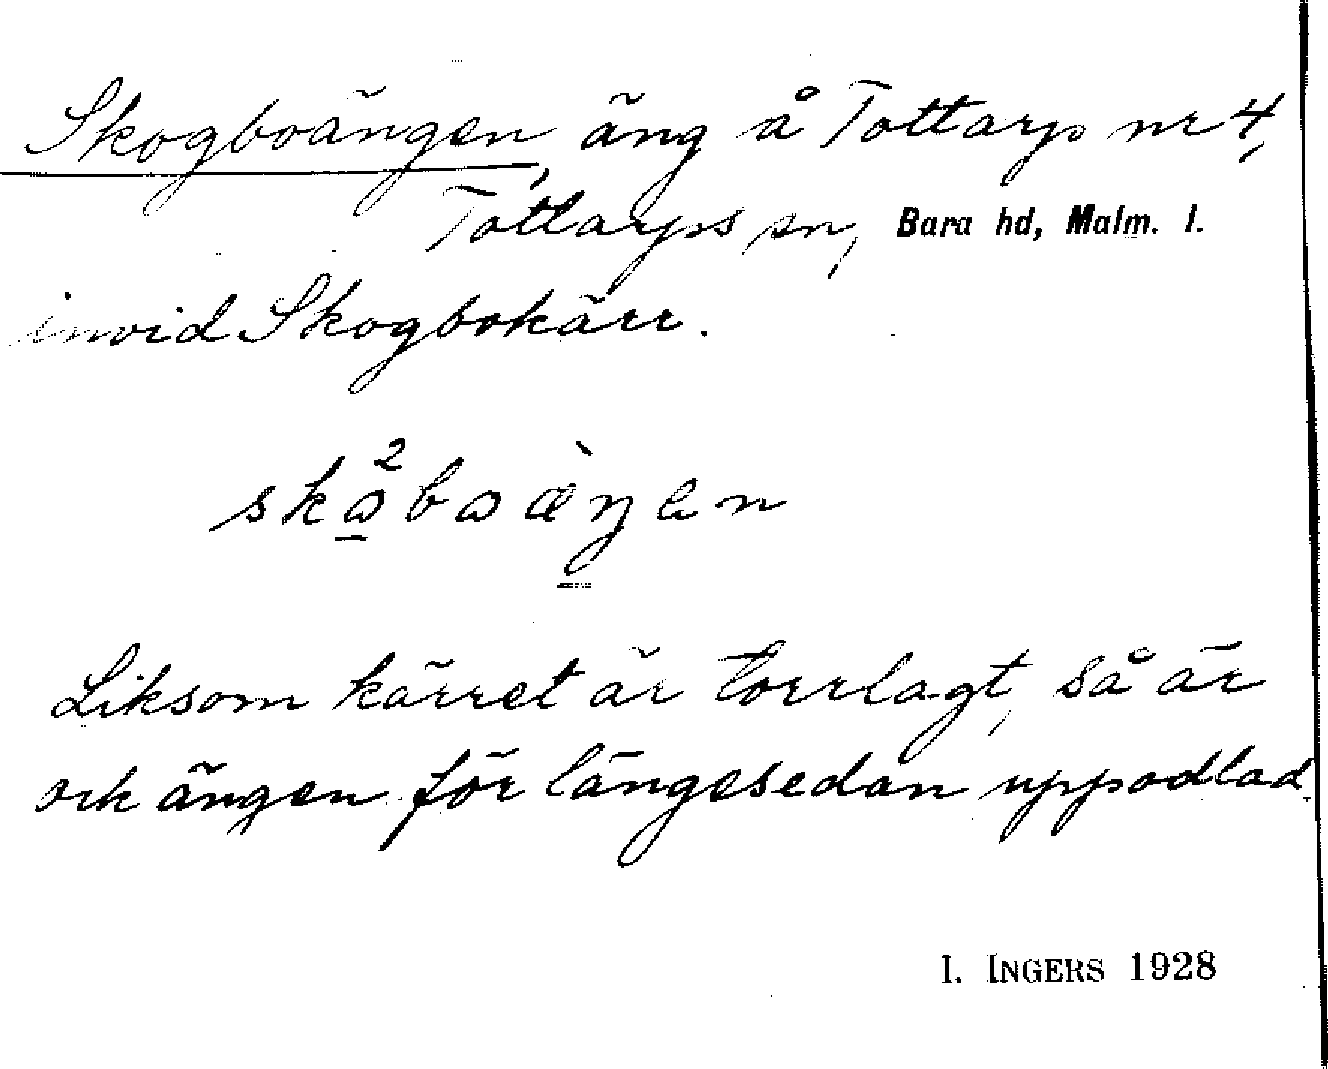 Skogboängen, äng å Tottarp nr 4,
Tottarps sn, Bara hd, Malm. l.
invid Skogbokärr.
skα̲²bαæ̀ŋ̲en
Liksom kärret är torrlagt, så är
ock ängen för längesedan uppodlad.
I. INGERS 1928